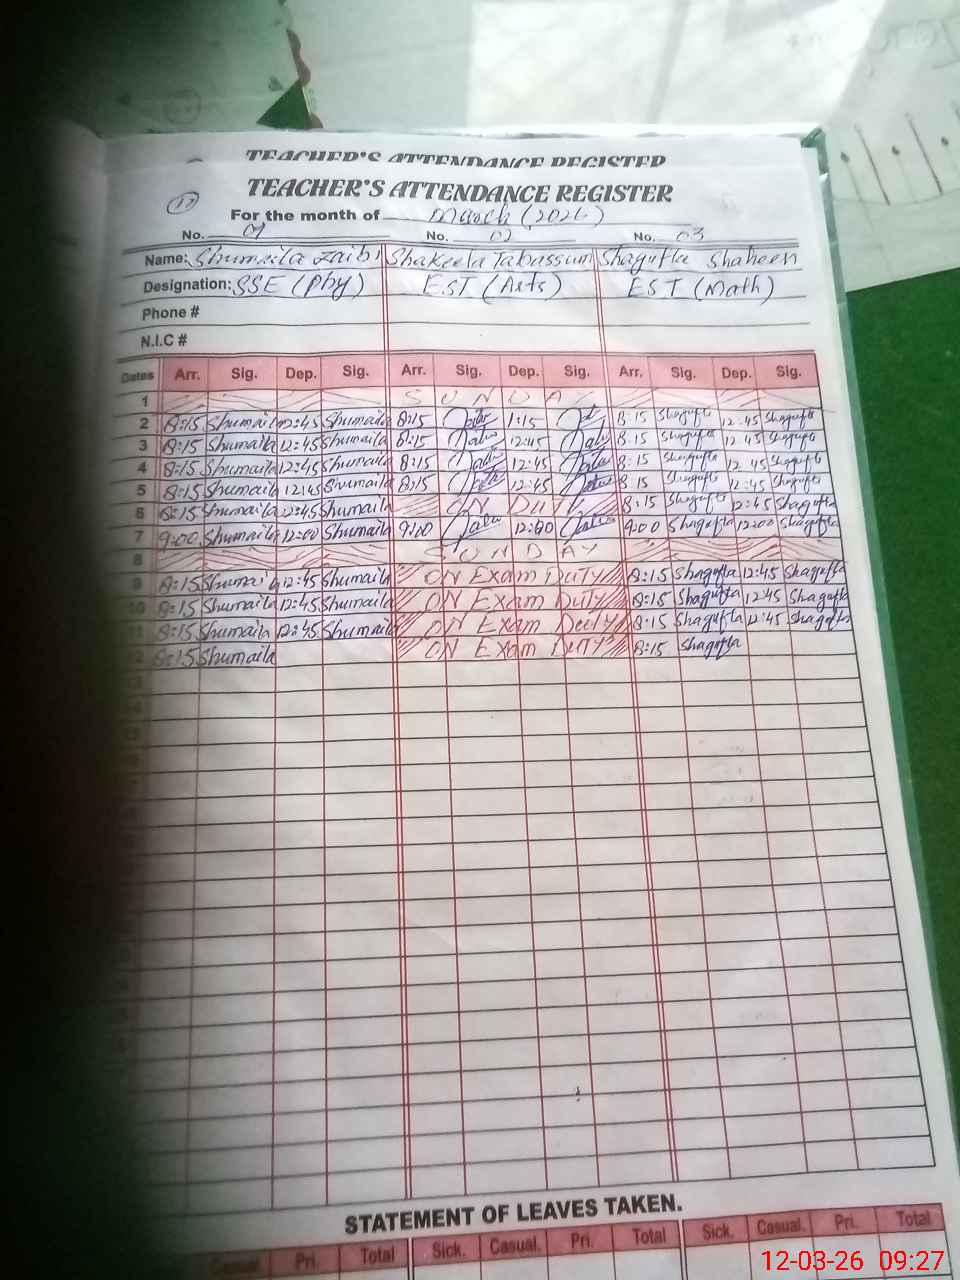 TEACHER'S ATTENDANCE REGISTER
TEACHER'S ATTENDANCE REGISTER
17
For the month of March (2026)
No. 01 No. 02 No. 03
Name: Shumaila Zaibi Shakeela Tabassum Shagufta Shaheen
Designation: SSE (Phy) EST (Arts) EST (Math)
Phone #
N.I.C #
Dates Arr. Sig. Dep. Sig. Arr. Sig. Dep. Sig. Arr. Sig. Dep. Sig.
1 SUNDAY
2 8:15 Shumaila 12:45 Shumaila 8:15 1:15 8:15 Shagufta 12:45 Shagufta
3 8:15 Shumaila 12:45 Shumaila 8:15 12:45 8:15 Shagufta 12:45 Shagufta
4 8:15 Shumaila 12:45 Shumaila 8:15 12:45 8:15 Shagufta 12:45 Shagufta
5 8:15 Shumaila 12:45 Shumaila 8:15 12:45 8:15 Shagufta 12:45 Shagufta
6 8:15 Shumaila 12:45 Shumaila ON DUTY 8:15 Shagufta 12:45 Shagufta
7 9:00 Shumaila 12:00 Shumaila 9:00 12:00 9:00 Shagufta 12:00 Shagufta
8 SUNDAY
9 8:15 Shumaila 12:45 Shumaila ON Exam DUTY 8:15 Shagufta 12:45 Shagufta
10 8:15 Shumaila 12:45 Shumaila ON Exam DUTY 8:15 Shagufta 12:45 Shagufta
11 8:15 Shumaila 12:45 Shumaila ON Exam Duty 8:15 Shagufta 12:45 Shagufta
12 8:15 Shumaila ON Exam DUTY 8:15 Shagufta
STATEMENT OF LEAVES TAKEN.
Pri. Total Sick. Casual. Pri. Total Sick. Casual. Pri. Total
12-03-26 09:27